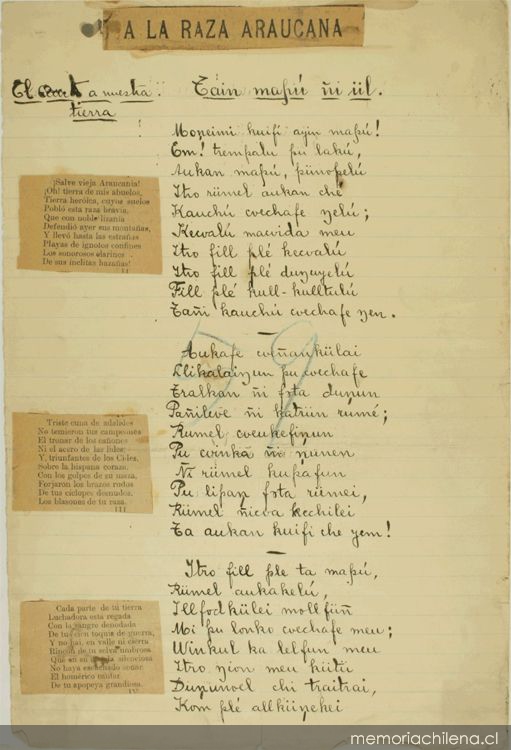 A LA RAZA ARAUCANA
El a nuestra
tierra
Tain mapú ñi ül.
Moŋeimi kuifi ayin mapu!
Em! trempalu pu lakú,
Aukan mapú, pünopelú
Itro rümel aukan che
Kauchú cvechafe ŋelú;
Kecvalú macvida meu
Itro fill plé kecvalú
Itro fill plé duŋuyelú
Fill plé kull-kulltulú
Tañi kauchú cvechafe yen.
¡Salve vieja Araucania!
¡Oh! tierra de mis abuelos,
Tierra heróica, cuyos suelos
Pobló esta raza bravía,
Que con noble lizanía
Defendió ayer sus montañas,
Y llevó hasta las estrañas
Playas de ignotos confines
Los sonorosos clarines
De sus ínclitas hazañas!
II
Aukafe cveñankülai
Llikalaiŋun pu cvechafe
Tralkan ñi fsta duŋun
Pañilcve ñi katrün rume;
Rumel cveukefiŋun
Pu cvinka ñi ŋünen
Ñi rümel kupafun
Pu lipaŋ fsta rümei,
Rümel ñicva kechilei
Ta aukan kuifi che yem!
Triste cuna de adalides
No temieron tus campeones
El tronar de los cañones
Ni el acero de las lides;
Y, triunfantes de los Cides,
Sobre la hispana coraza,
Con los golpes de su maza,
Forjaron los brazos rudos
De tus cíclopes desnudos,
Los blasones de tu raza.
III
Itro fill ple ta mapú,
Rümel aukakelú,
Illfodkülei mollfüñ
Mi pu lonko cvechafe meu;
Winkul ka lelfun meu
Itro ŋion meu kütü
Duŋuñvel chi traitrai,
Kom plé allküŋekei
Cada parte de tu tierra
Luchadora esta regada
Con la sangre denodada
De tu cien toquis de guerra,
Y no hai, en valle ni cierra
Rincon de tu selva umbrosa
Que en su silenciosa
No haya escuchado sonar
El homérico cantar
De tu apopeya grandiosa.
IV
memoriachilena.cl